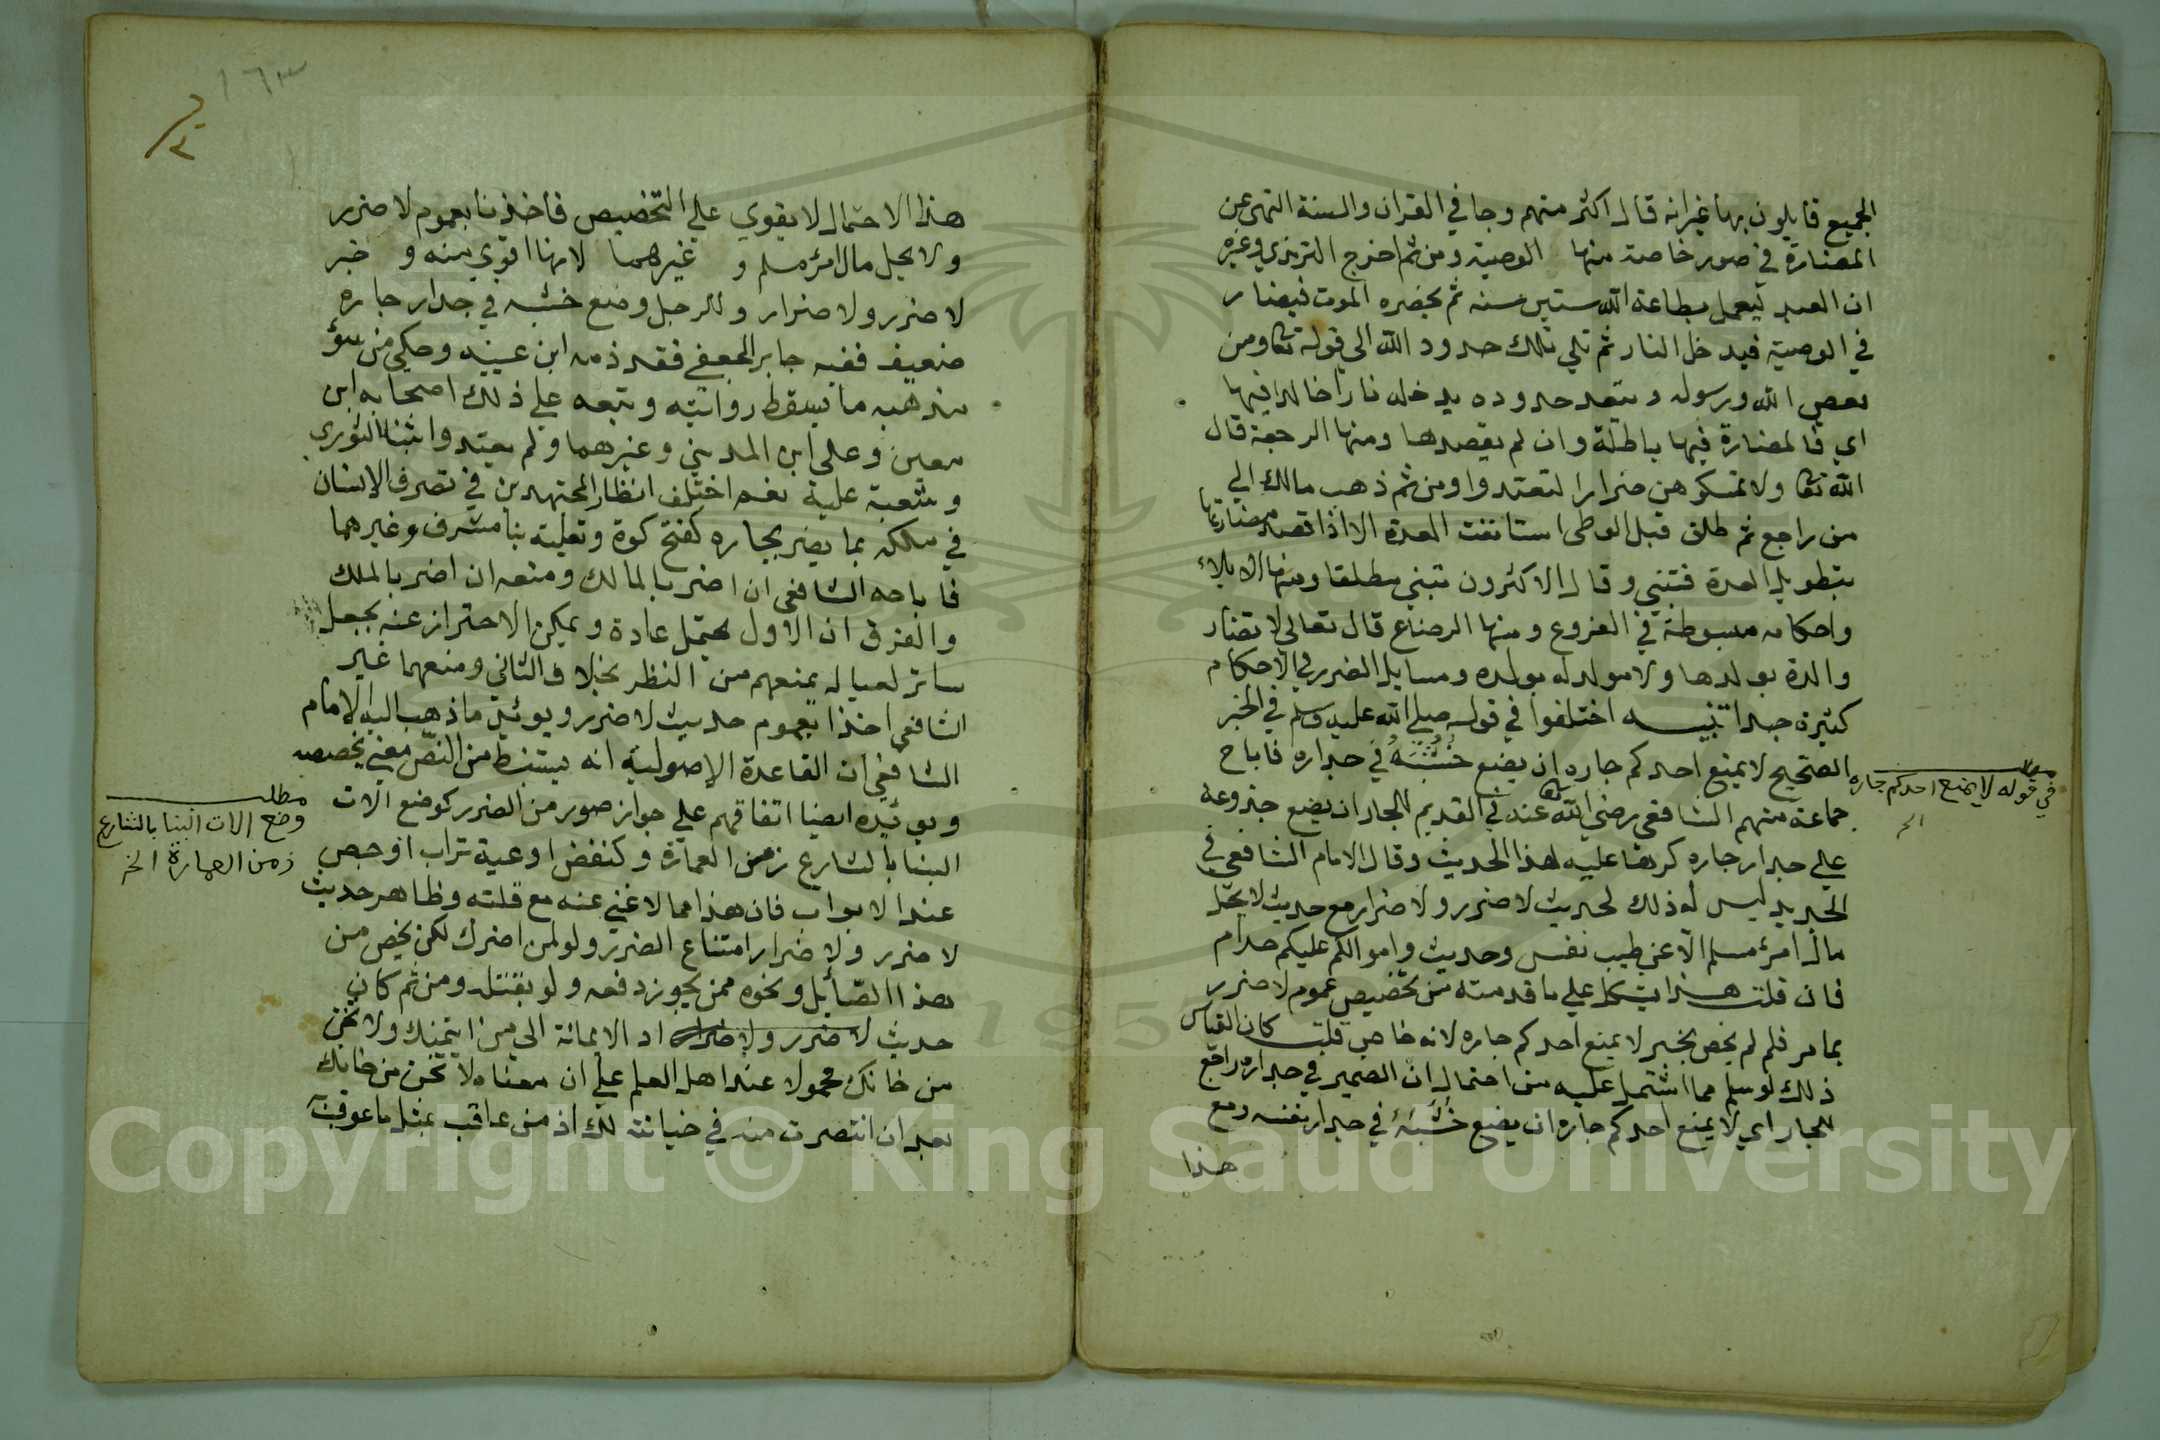 الجميع قايلون بها غير انه قال اكثر منهم وجا في القران والسنة النهي عن
المضارة في صور خاصة منها الوصية ومن ثم اخرج الترمذي وغيره
ان العبد ليعمل بطاعة الله ستين سنه ثم يحضره الموت فيضار
في الوصية فيدخل النار ثم تلي تلك حدود الله الى قوله تعا ومن
يعص الله ورسوله ويتعد حدوده يدخله نارا خالدا فيها
اي فالمضارة فيها باطلة وان لم يقصدها ومنها الرجعة قال
الله تعا ولا تمسكوهن ضرارا لتعتدوا ومن ثم ذهب مالك الي
من راجع ثم طلق قبل الوطى استانفت العدة الا اذا قصد مضارتها
بتطويل العدة فتبني وقال الاكثرون تبني مطلقا ومنها الايلاء
واحكامه مبسوطة في الفروع ومنها الرضاع قال تعالى لا تضار
والدة بولدها ولا مولد له بولده ومسايل الضرر في الاحكام
كثيرة جدا تنبيه اختلفوا في قوله صلى الله عليه وسلم في الخبر
الصحيح لا يمنع احدكم جاره ان يضع خشبة في جداره فاباح
جماعة منهم الشافعي رضي الله عنه في القديم للجار ان يضع جذوعه
علي جدار جاره كرها عليه لهذا الحديث وقال الامام الشافعي في
الجديد ليس له ذلك لحديث لا ضرر ولا ضرار مع حديث لا يحل
مال امرئ مسلم الا عن طيب نفس وحديث واموالكم عليكم حرام
فان قلت هذا يشكل علي ما قدمته من تخصيص عموم لا ضرر
بما مر فلم لم يخص بخبر لا يمنع احدكم جاره لانه خاص قلت كان القياس
ذلك لو سلم مما اشتمل عليه من احتمال ان الضمير في جداره راجع
للجار اي لا يمنع احدكم جاره ان يضع خشبة في جدار نفسه ومع
هذا
مطلب
في قوله لا يمنع احدكم جاره
الخ
١٦٣
هذا الاحتمال لا يقوي على التخصيص فاخذنا بعموم لا ضرر
ولا يحل مال امرئ مسلم و غيرهما لانها اقوي منه و خبر
لا ضرر ولا ضرار وللرجل وضع خشبه في جدار جاره
ضعيف ففيه جابر الجعفي فقد ذمه ابن عيينه وحكي من سؤ
مذهبه ما يسقط روايته وتبعه علي ذلك اصحابه ابن
معين وعلى ابن المديني وغيرهما ولم يعتدوا بثنا الثوري
وشعبة عليه نعم اختلف انظار المجتهدين في تصرف الانسان
في ملكه بما يضر بجاره كفتح كوة وتعلية بنا مشرف وغيرهما
فاباحه الشافعي ان اضر بالمالك ومنعه ان اضر بالملك
والفرق ان الاول يحتمل عادة ويمكن الاحتراز عنه بجعل
ساتر لعياله يمنعهم من النظر بخلاف الثاني ومنعهما غير
الشافعي اخذا بعموم حديث لا ضرر ويوئيد ما ذهب اليه الامام
الشافعي ان القاعدة الاصولية انه يستنبط من النص معني يخصصه
ويوئيده ايضا اتفاقهم علي جواز صور من الضرر كوضع الات
البنا بالشارع زمن العمارة وكنفض اوعية تراب او جص
عند الابواب فان هذا مما لا غني عنه مع قلته وظاهر حديث
لا ضرر ولا ضرار امتناع الضرر ولو لمن اضرك لكن يخص من
هذا الصايل ونحوه ممن يجوز دفعه ولو بقتل ومن ثم كان
حديث لا ضرر ولا ضرار اد الامانة الى من ايتمنك ولا تخن
من خانك محمولا عند اهل العلم علي ان معناه لا تخن من خانك
بعد ان انتصرت منه في خيانته لك اذ من عاقب بمثل ما عوقب
مطلب
وضع الات البنا بالشارع
زمن العمارة الخ
Copyright © King Saud University
1957